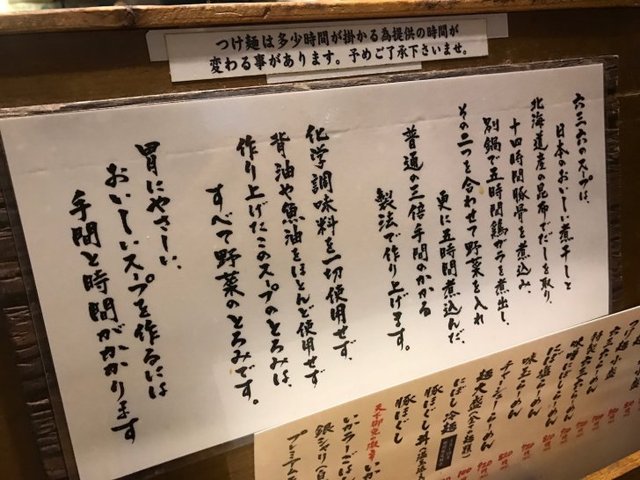 つけ麺は多少時間が掛かる為提供の時間が
変わる事があります。予めご了承下さいませ。
六三六のスープは、
日本のおいしい煮干しと
北海道産の昆布でだしを取り、
十四時間豚骨を煮込み、
別鍋で五時間鶏ガラを煮出し、
その二つを合わせて野菜を入れ
更に五時間煮込んだ、
普通の三倍手間のかかる
製法で作り上げます。
化学調味料を一切使用せず、
背油や魚油をほとんど使用せず
作り上げたこのスープのとろみは、
すべて野菜のとろみです。
胃にやさしい、
おいしいスープを作るには
手間と時間がかかります
味玉らーめん
チャーシューらーめん
麺大盛
にぼし冷麺
豚ほぐし
銀シャリ
プレミアム